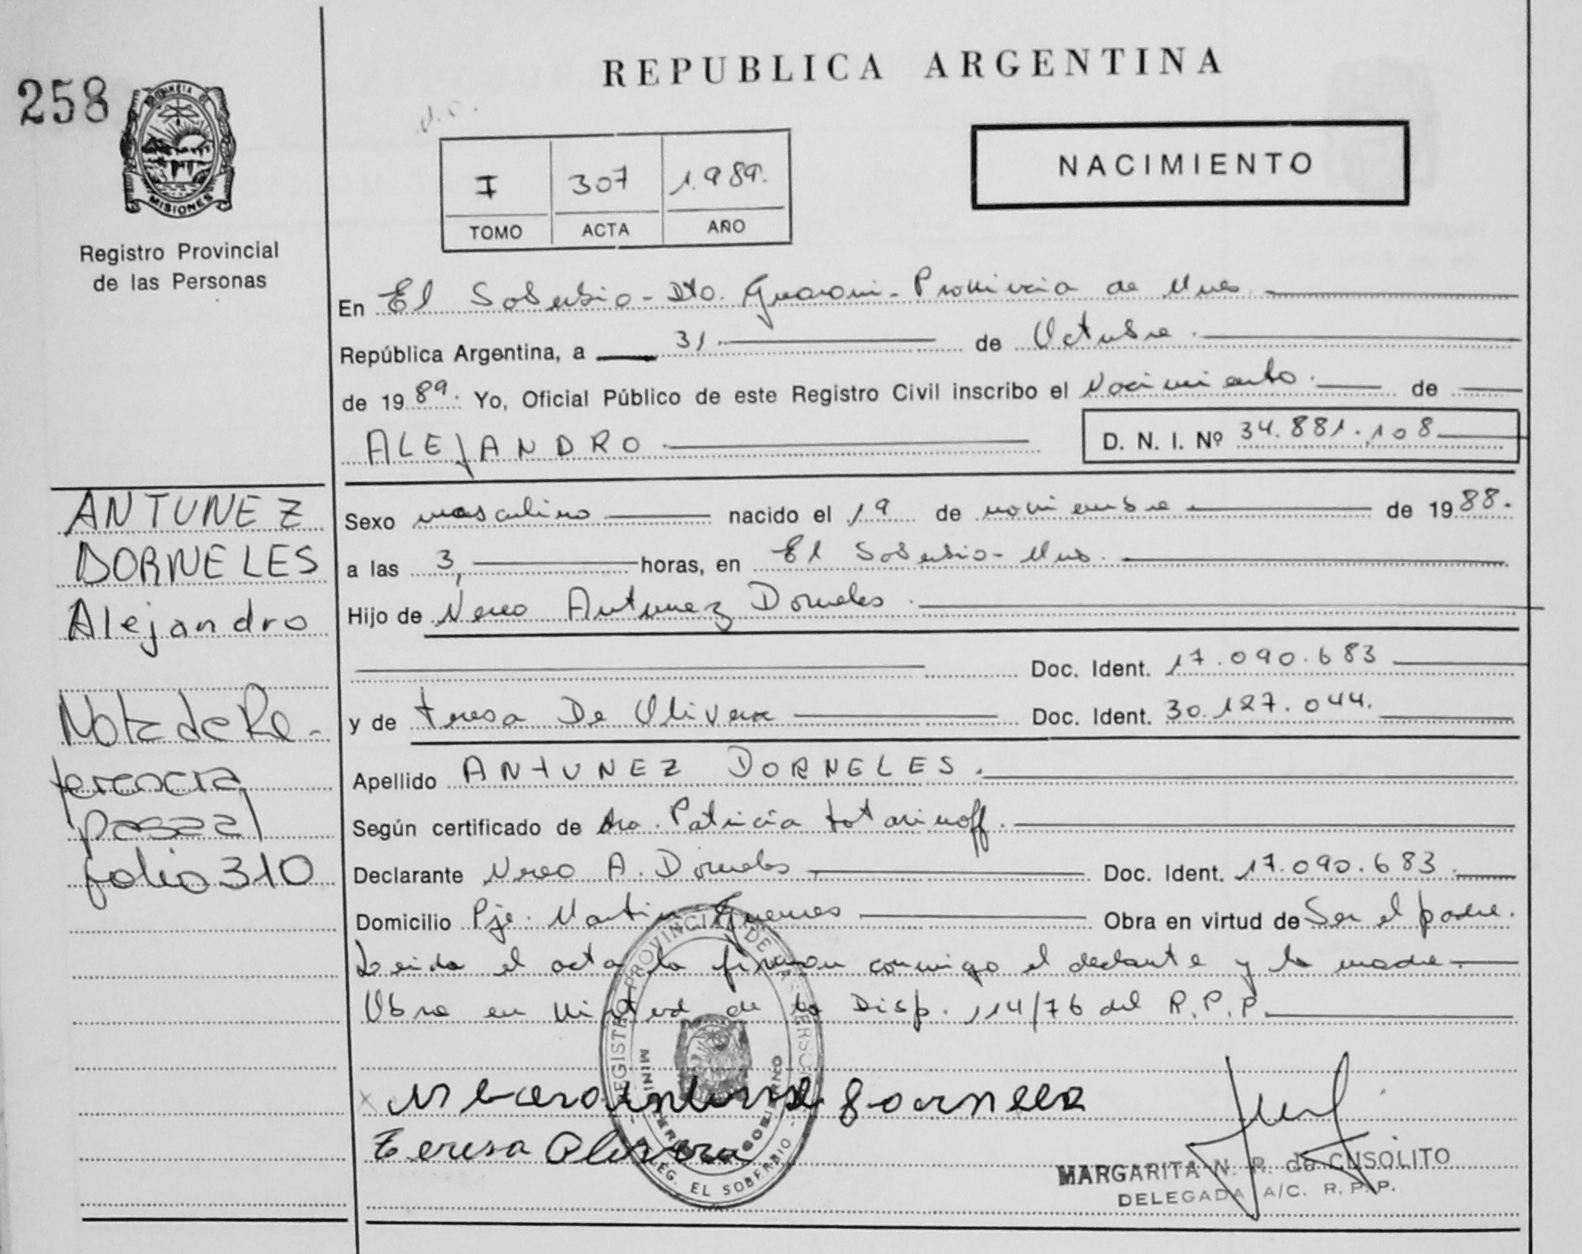 REPUBLICA ARGENTINA
258
PROVINCIA DE
MISIONES
Registro Provincial
de las Personas
I 307 1.989.
TOMO ACTA AÑO
NACIMIENTO
En El Soberbio - Dto. Guarani - Provincia de Mnes.
República Argentina, a 31 de Octubre.
de 1989. Yo, Oficial Público de este Registro Civil inscribo el Nacimiento. de
ALEJANDRO
D. N. I. Nº 34.881.108
ANTUNEZ
DORNELES
Alejandro
Nota de Re-
ferencia
pasa al
folio 310
Sexo masculino nacido el 19 de noviembre de 1988.
a las 3, horas, en El Soberbio - Mnes.
Hijo de Nereo Antunez Dorneles.
Doc. Ident. 17.090.683
y de Teresa De Olivera Doc. Ident. 30.127.044.
Apellido ANTUNEZ DORNELES.
Según certificado de Dra. Patricia
Declarante Nereo A. Dorneles Doc. Ident. 17.090.683.
Domicilio Pje. Martin Guemes Obra en virtud de Ser el padre.
Leida el acta la firman conmigo el declante y la madre.
Obra en virtud de la Disp. 114/76 del R.P.P.
REGISTRO PROVINCIAL DE LAS PERSONAS
MINISTERIO DE GOBIERNO
DELEG. EL SOBERBIO
Teresa Olivera
MARGARITA N. R. de CUSOLITO
DELEGADA A/C. R. P. P.